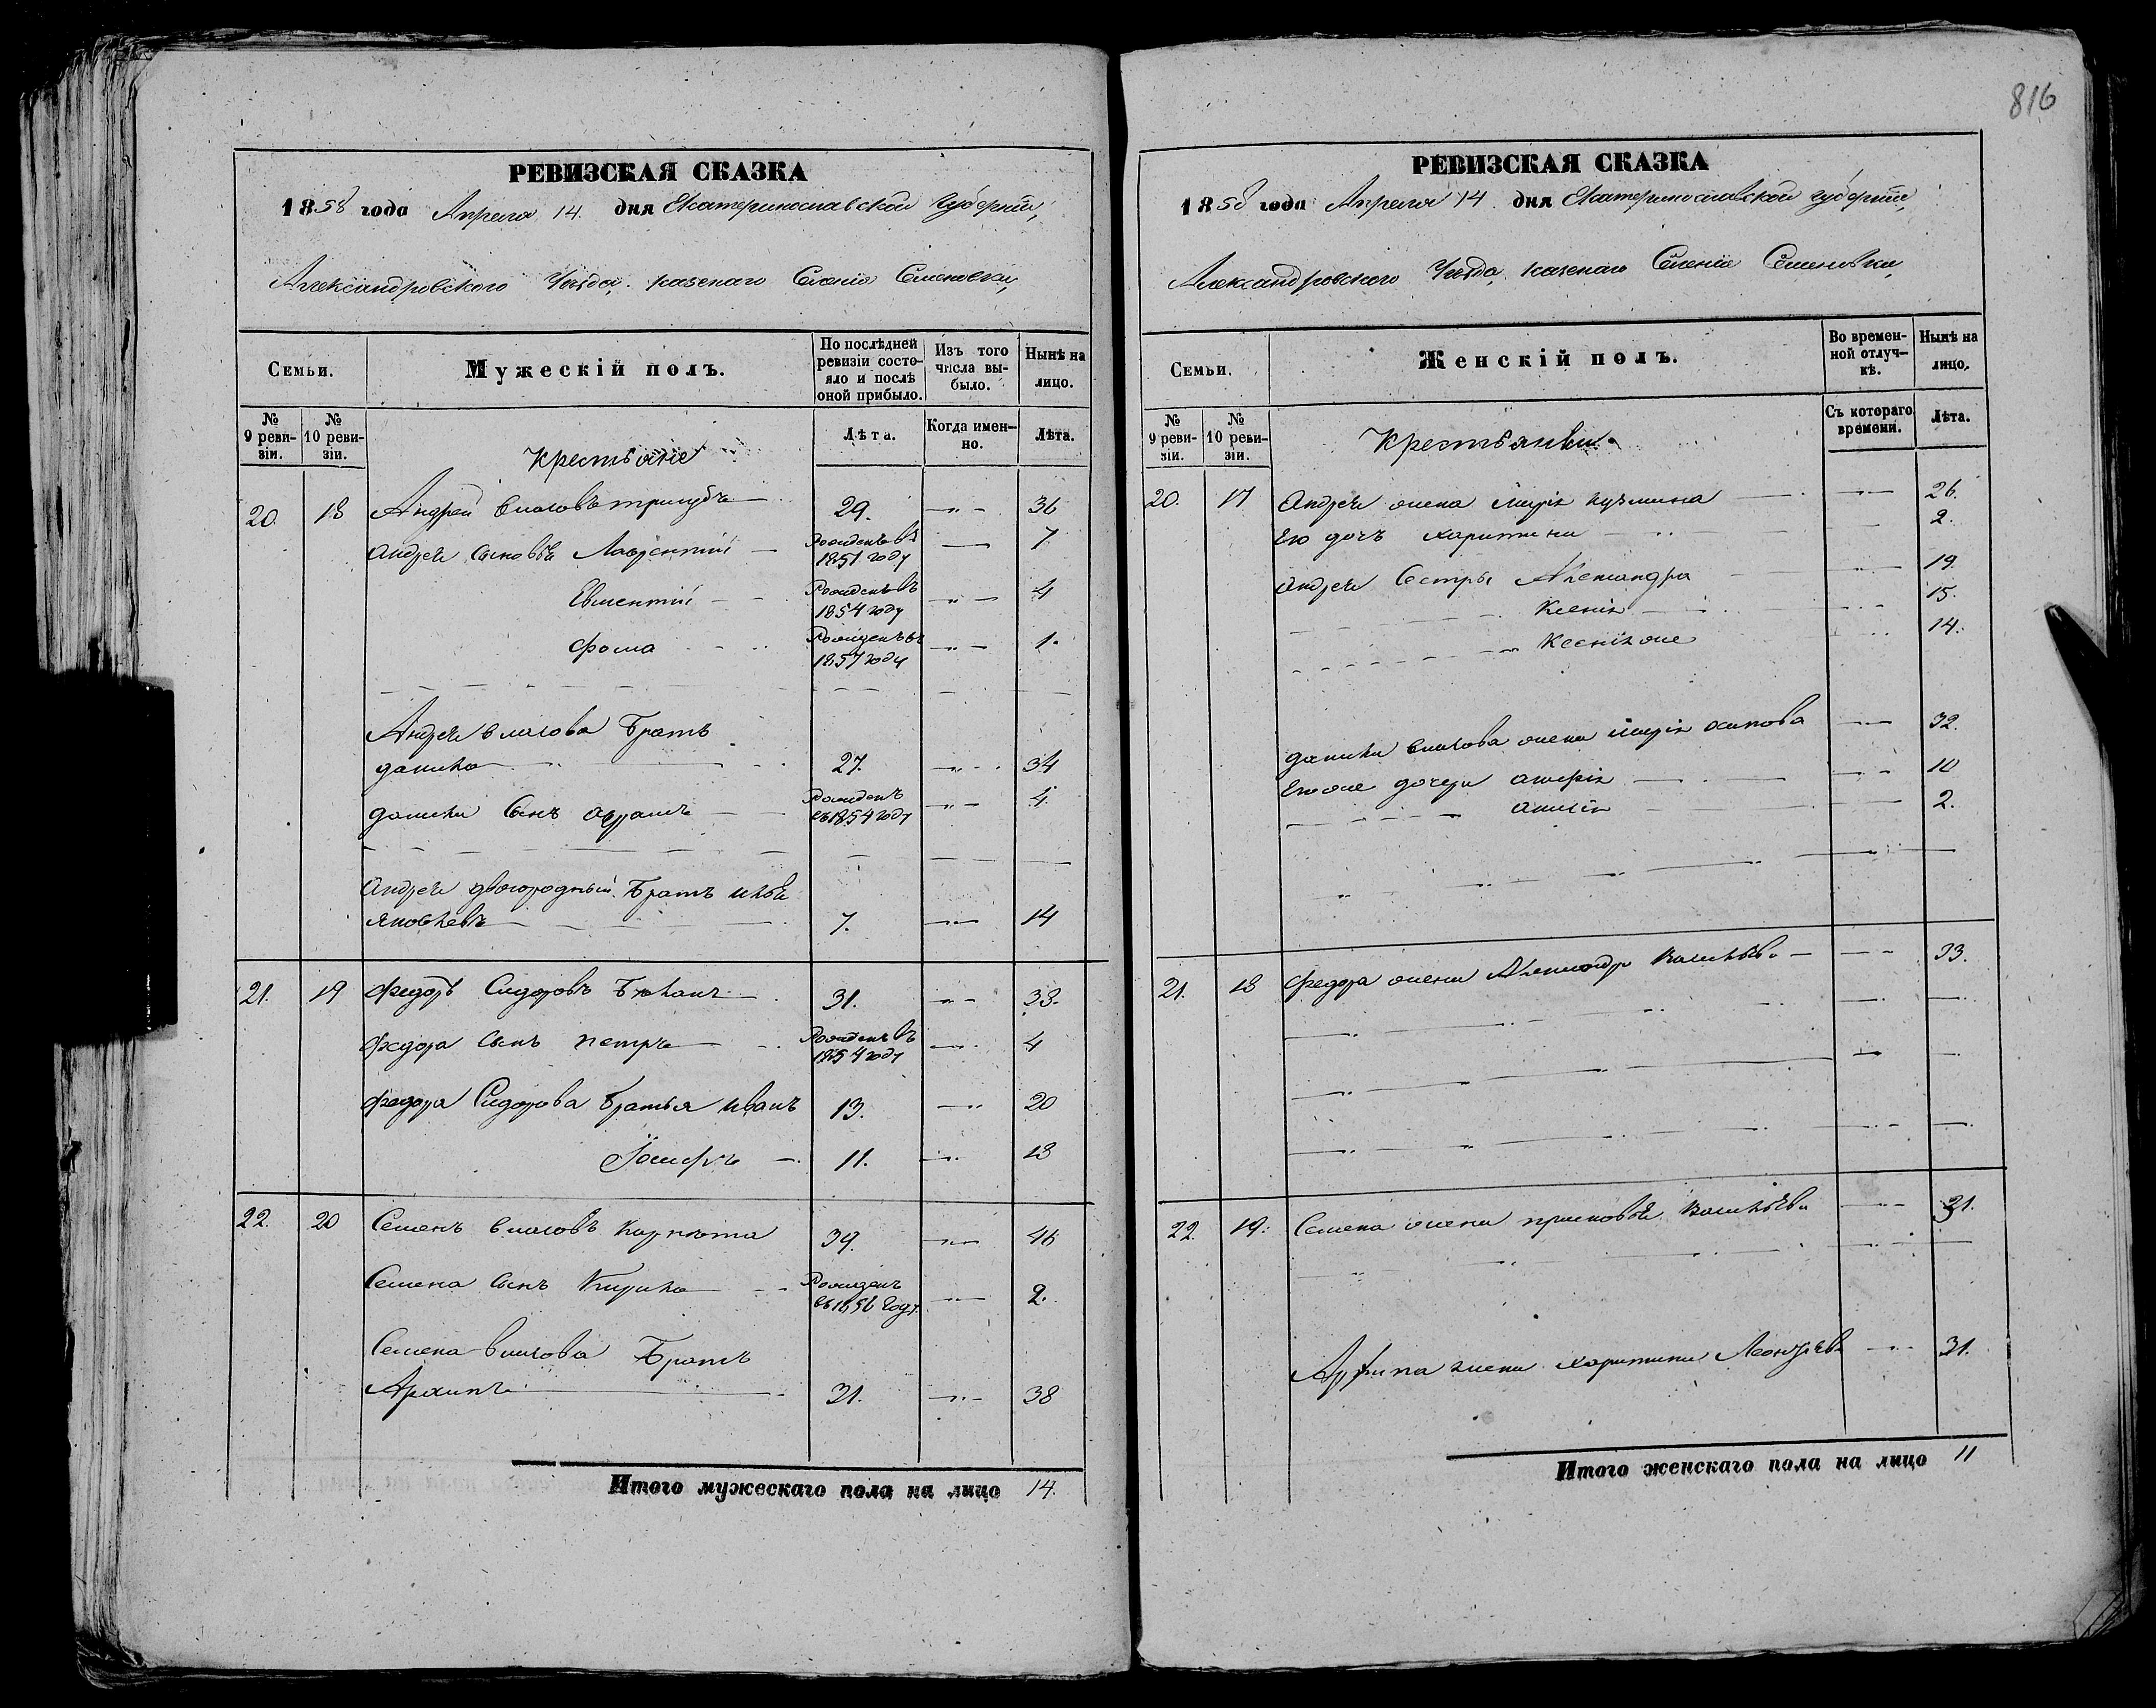 816
РЕВИЗСКАЯ СКАЗКА
1858 года Апреля 14 дня Екатеринославской Губернiи,
Александровского Уѣзда, казенаго Селенiя Семеновки,
Семьи.
Мужескiй полъ.
По послѣдней ревизiи состо-
яло и послѣ
оной прибыло.
Изъ того
числа вы-
было.
Нынѣ на
лицо.
№
9 реви-
зiи.
№
10 реви-
зiи.
Крестьяне
Лѣта.
Когда имен-
но.
Лѣта.
20. 18 Андрей Власовъ 29. 36
Андрея сыновья Лаврентiй Рожденъ въ 1851 году 7
Евментiй Рожденъ въ 1854 году 4
Фома Рожденъ въ 1857 году 1.
Андрея Власова Братъ
данило 27. 34
данила Сынъ Рожденъ въ 1854 году 4.
Андрея двоюродный Братъ
Яковлевъ 7. 14
21. 19 Федоръ Сидоровъ 31. 38.
Федора Сынъ петръ Рожденъ въ 1854 году 4
Федора Сидорова Братья иванъ 13. 20
Iосифъ 11. 18
22. 20 Семенъ Власовъ Карпота 39. 46
Семена Сынъ Кирило Рожденъ въ 1856 году. 2.
Семена Власова Братъ
Архипъ 31. 38
Итого мужескаго пола на лицо 14.
РЕВИЗСКАЯ СКАЗКА
1858 года Апреля 14 дня Екатеринославской Губернiи,
Александровского Уѣзда, казенаго Селенiя Семеновки,
Семьи.
Женскiй полъ.
Во времен-
ной отлуч-
кѣ.
Нынѣ на
лицо.
№
9 реви-
зiи.
№
10 реви-
зiи.
Крестьянки
Съ котораго
времени.
Лѣта.
20. 17 Андрея жена Марiя кузмина 26.
Его дочь харитина 2.
Андрея Сестры Александра 19.
Ксенiя 15.
Ксенiя же 14.
данила Власова жена Марiя 32.
Его же дочери 10
2.
21. 18 Федора жена Александра Васильева 33.
22. 19. Семена жена прасковья Васильева 31.
Архипа жена харитина Леонтьева 31.
Итого женскаго пола на лицо 11